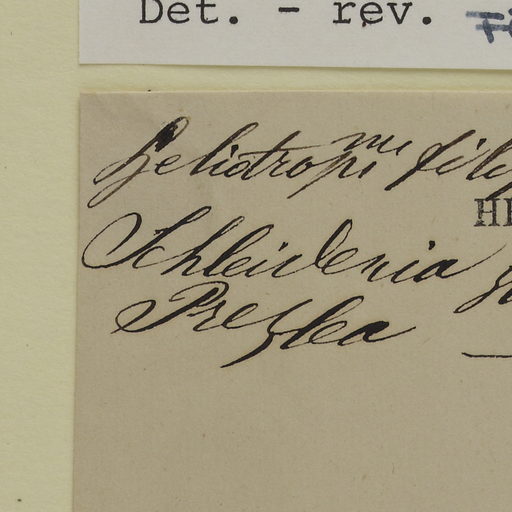 Det. - rev.
Heliotropi^um fili
HE
Schleidenia
Preslea